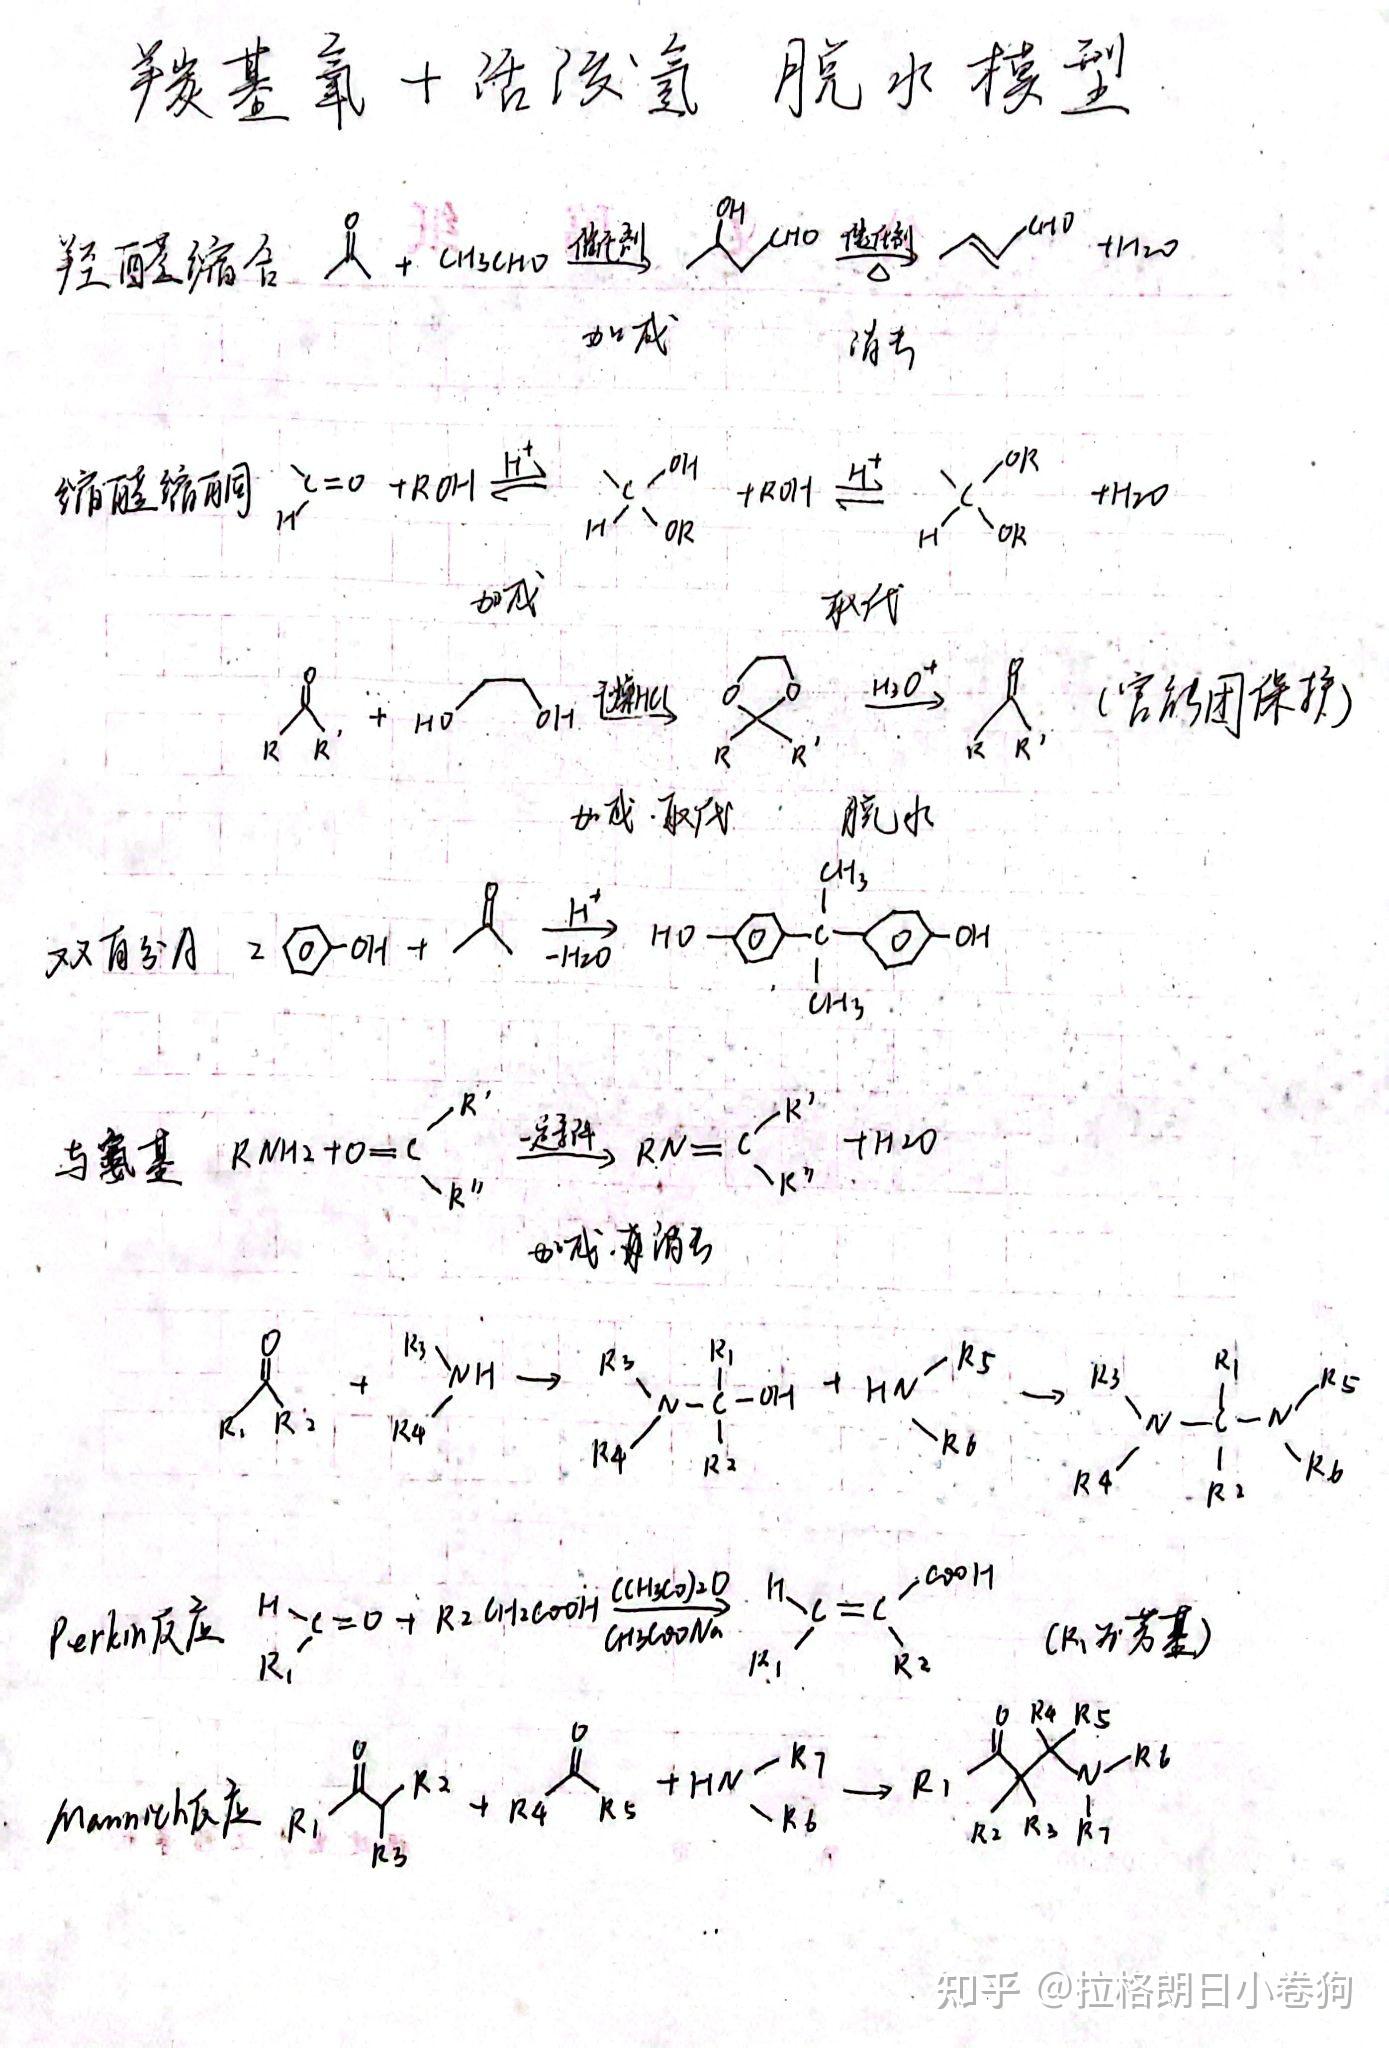 羰基氧 + 活泼氢 脱水模型
羟醛缩合 O + CH3CHO 催化剂 OH CHO 催化剂 △ CHO + H2O
加成 消去
缩醛缩酮 H C=O + ROH H+ H C OH OR + ROH H+ H C OR OR + H2O
加成 取代
O R R' + HO OH 干燥HCl O O R R' H3O+ O R R' (官能团保护)
加成.取代 脱水
双酚A 2 OH + O H+ -H2O HO C CH3 CH3 OH
与氨基 RNH2 + O=C R' R'' 一定条件 RN=C R' R'' + H2O
加成.再消去
O R1 R2 + R3 R4 NH → R3 R4 N-C-OH R1 R2 + HN R5 R6 → R3 R4 N-C-N R1 R2 R5 R6
Perkin反应 H R1 C=O + R2CH2COOH (CH3CO)2O CH3COONa H R1 C=C COOH R2 (R1为芳基)
Mannich反应 O R1 R2 R3 + O R4 R5 + HN R7 R6 → R1 O R4 R5 R2 R3 N R6 R7
知乎 @拉格朗日小卷狗